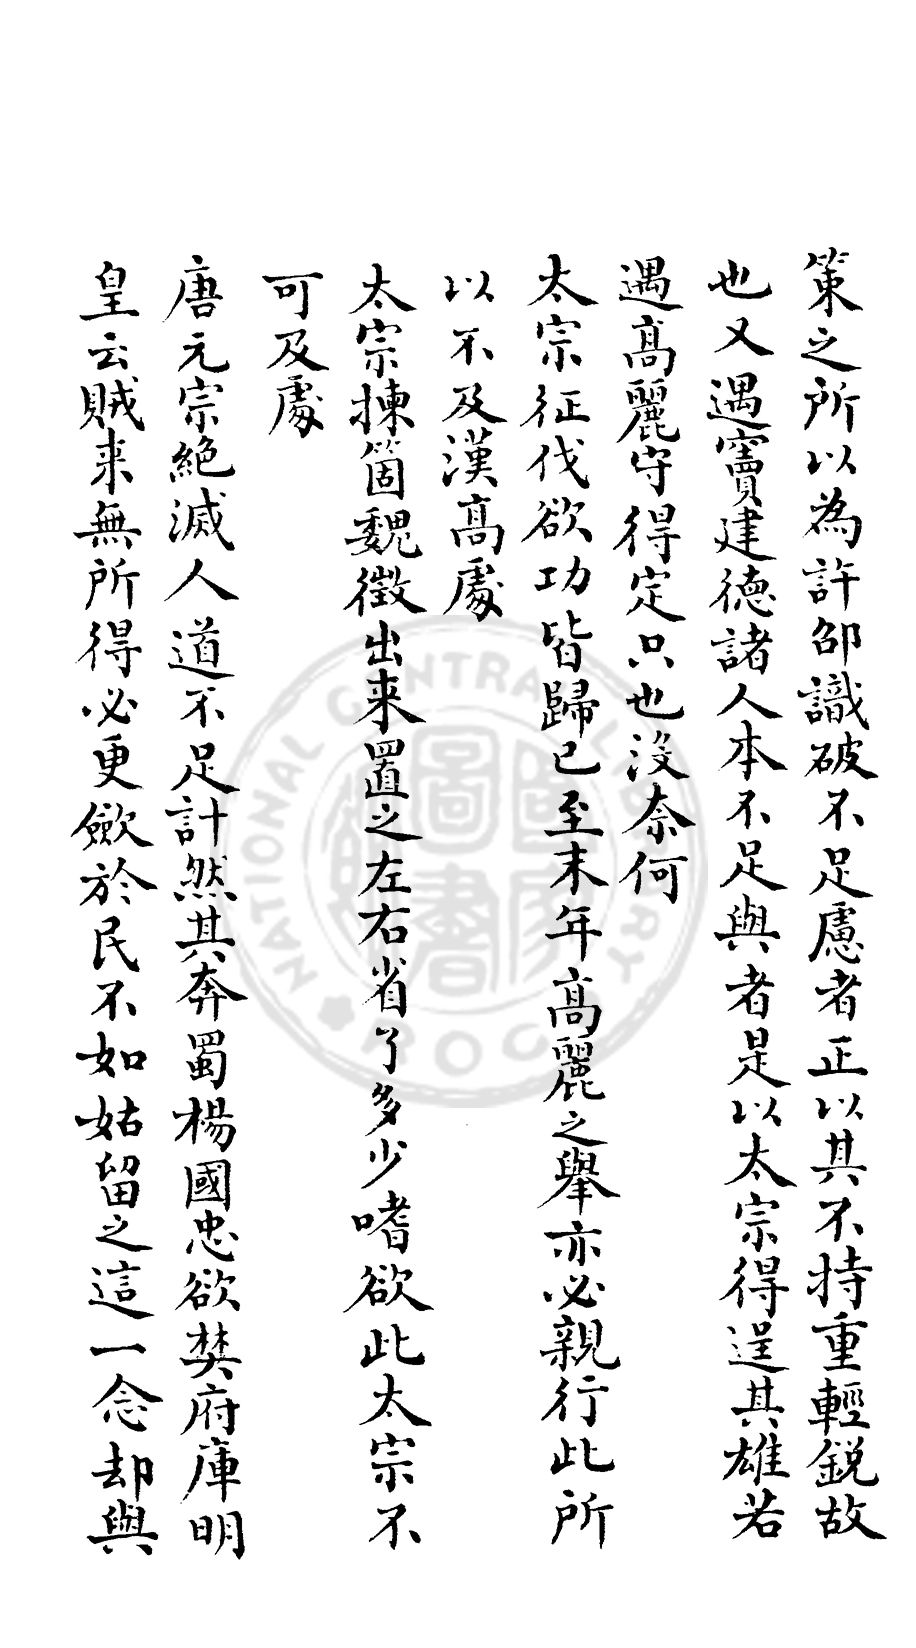 策之所以為許邵識破不足慮者正以其不持重輕銳故
也又遇竇建德諸人本不足與者是以太宗得逞其雄若
遇髙麗守得定只也沒奈何
太宗征伐欲功皆歸己至末年髙麗之舉亦必親行此所
以不及漢髙處
太宗揀箇魏徵出来置之左右省了多少嗜欲此太宗不
可及處
唐元宗絶滅人道不足計然其奔蜀楊國忠欲焚府庫明
皇云賊来無所得必更歛於民不如姑留之這一念却與
NATIONAL CENTRAL LIBRARY
R O C
國家圖書館